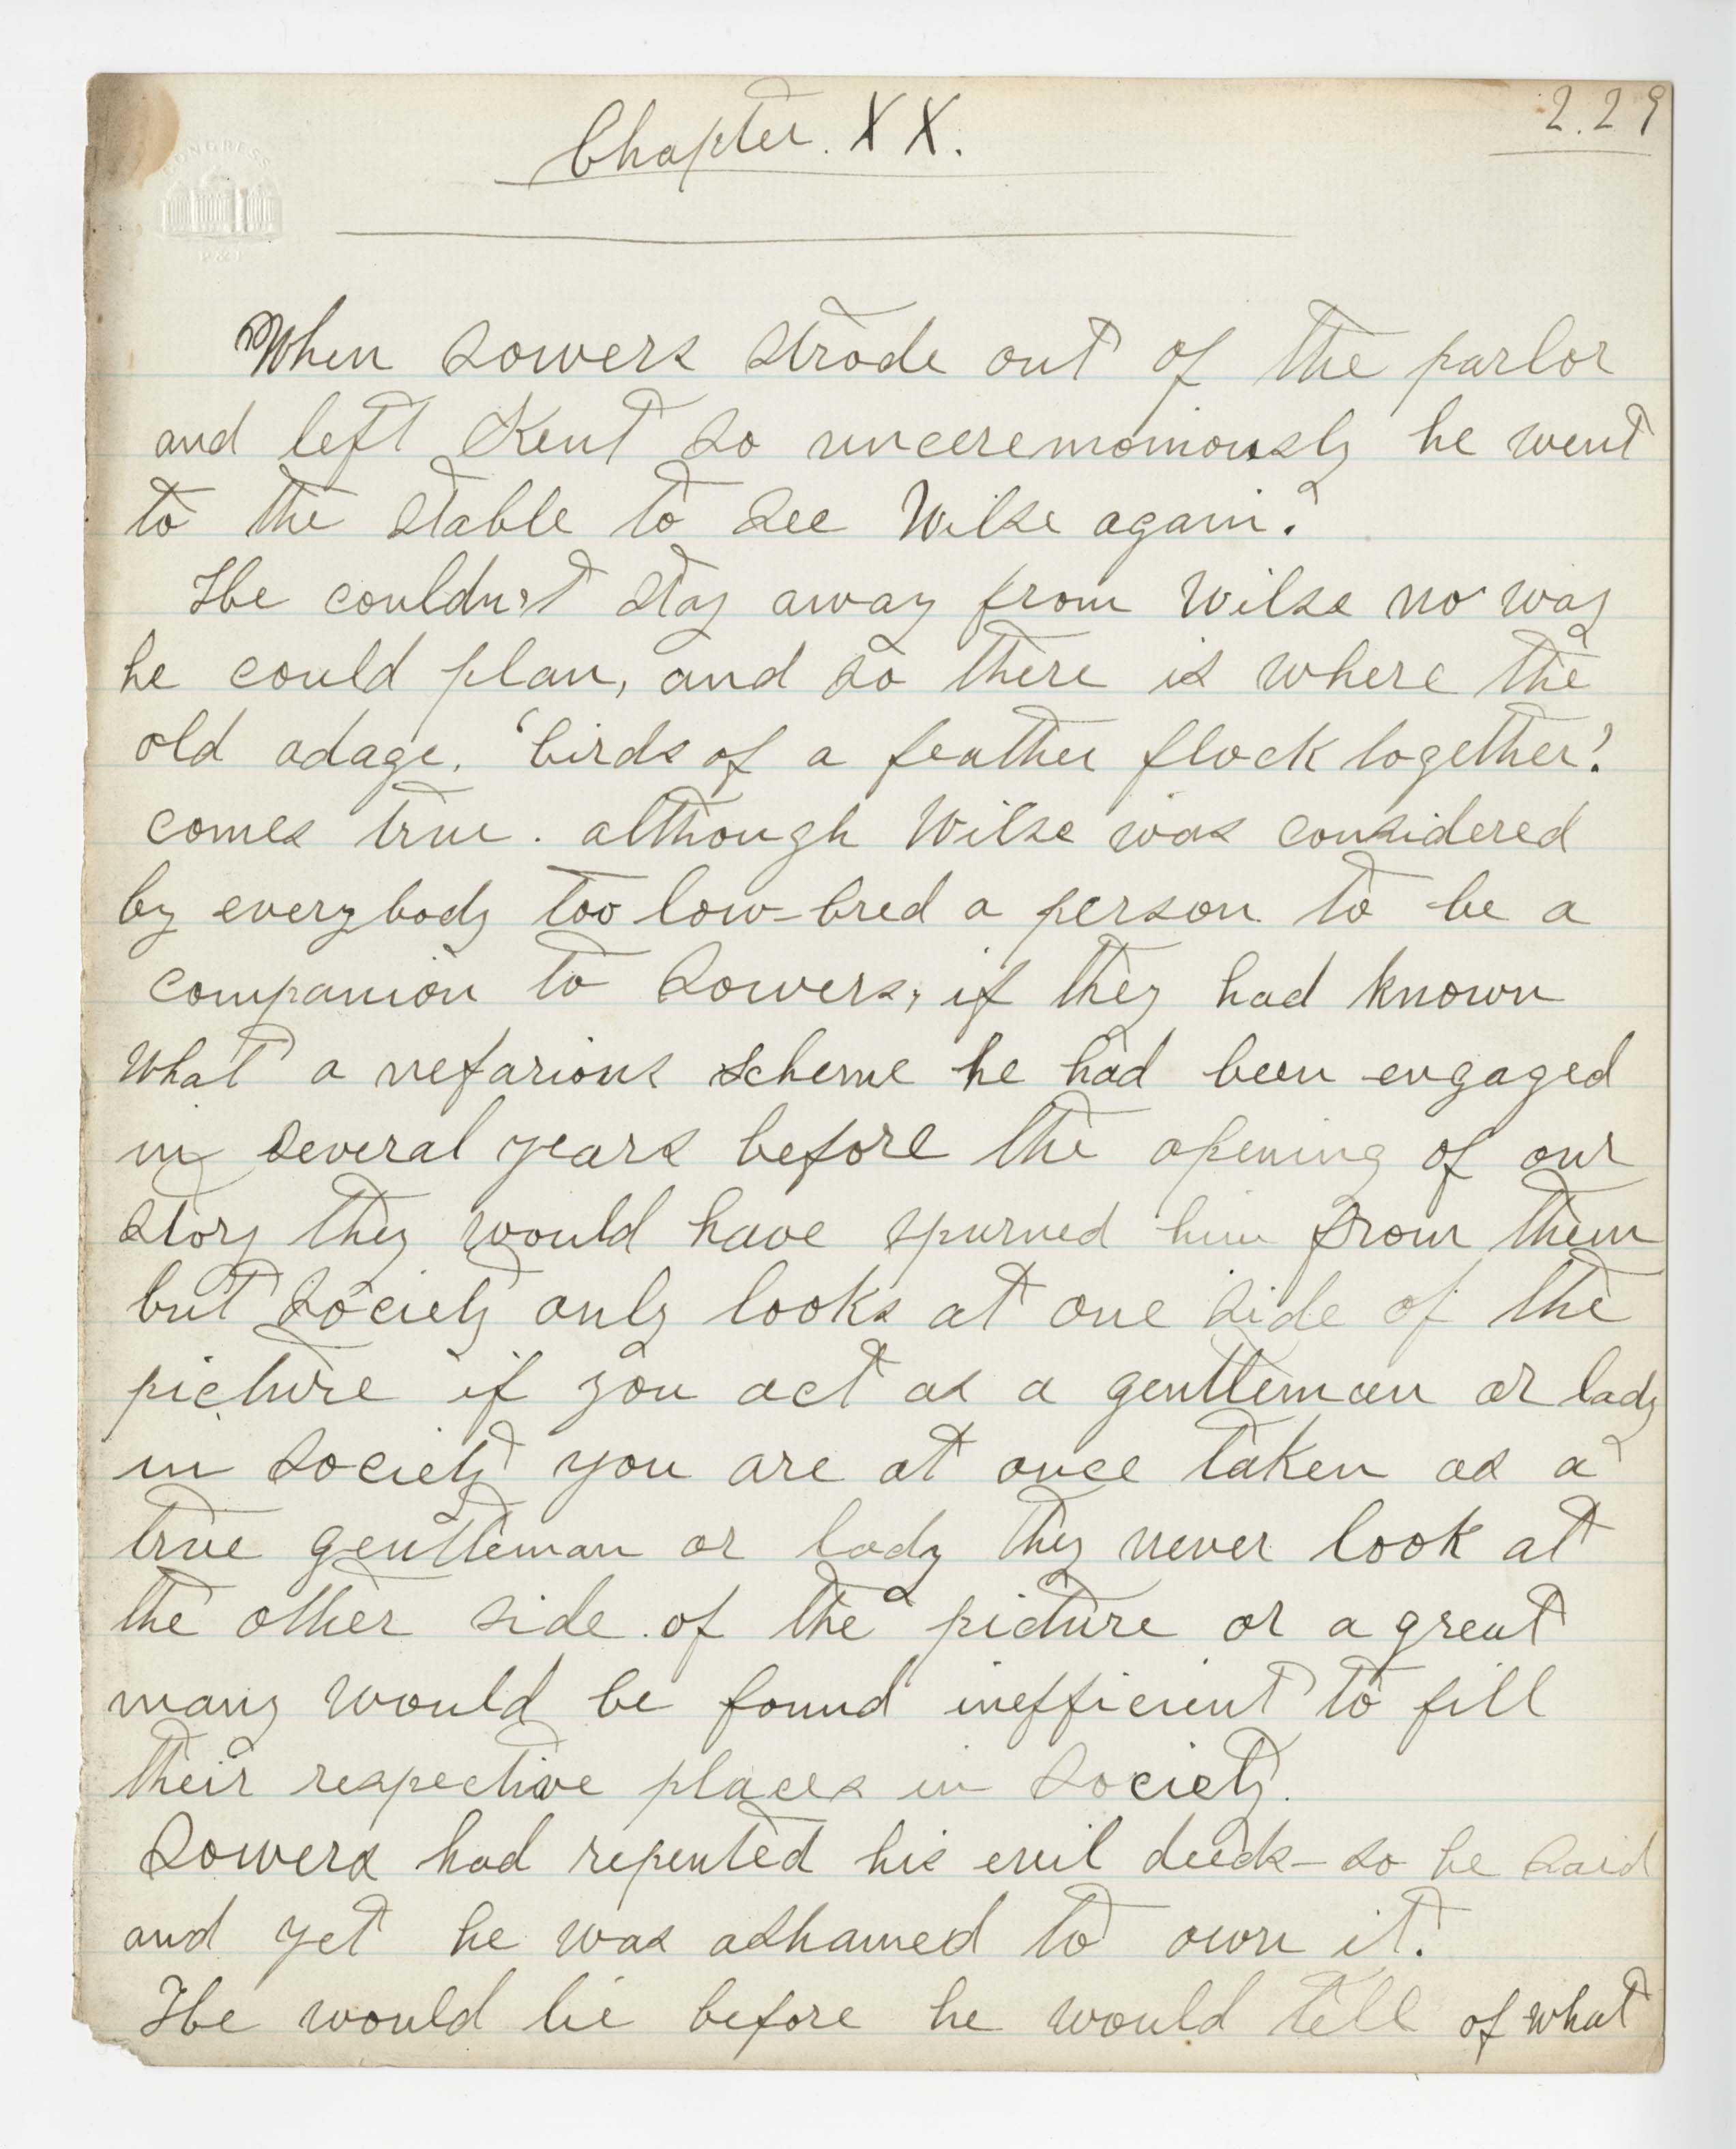 2.29
Chapter. XX.
CONGRESS
P&J
When Sowers strode out of the parlor
and left Kent so unceremoniously he went
to the stable to see Wilse again.
He couldn't stay away from Wilse no way
he could plan, and so there is where the
old adage. 'birds of a feather flock together!
comes true. although Wilse was considered
by everybody too low-bred a person to be a
companion to Sowers, if they had known
what a nefarious scheme he had been engaged
in several years before the opening of our
story they would have spurned him from them
but society only looks at one side of the
picture if you act as a gentleman or lady
in society you are at once taken as a
true gentleman or lady they never look at
the other side of the picture or a great
many would be found inefficient to fill
their respective places in society.
Sowers had repented his evil deeds - so he said
and yet he was ashamed to own it.
He would lie before he would tell of what